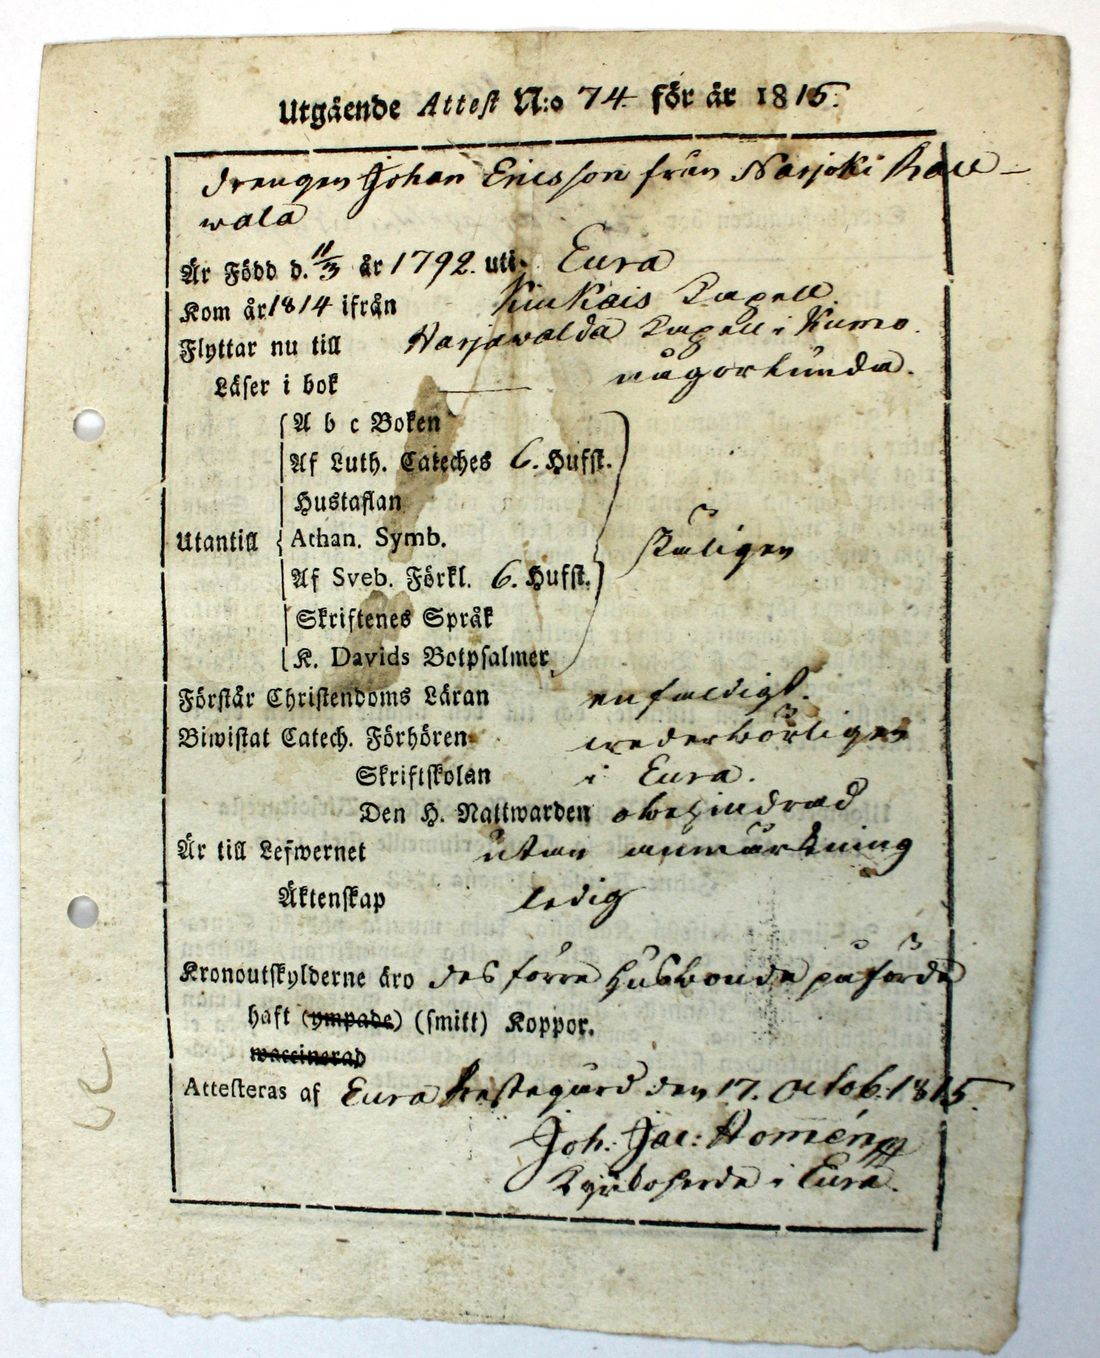 Utgående Attest N:o 74. för år 1815.
Drengen Johan Ericsson från Narjoki Kau-
wala
Är Född d. 11/3 år 1792. uti Eura
Kom år 1814 ifrån Kiukais Capell.
Flyttar nu till Harjawalda Capell i Kumo.
Läser i bok — någorlunda.
A b c Boken
Af Luth. Cateches 6. Hufst.
Hustaflan
Utantill Athan. Symb. skäligen
Af Sveb. Förkl. 6. Hufst.
Skriftenes Språk
K. Davids Botpsalmer
Förstår Christendoms Läran enfaldigt.
Biwistat Catech. Förhören wederbörligen
Skriftskolan i Eura.
Den H. Nattwarden obehindrad
Är till Lefwernet utan anmärkning
Äktenskap ledig
Kronoutskylderne äro des förre Husbonde påförde
haft (ympade) (smitt) Koppor.
waccinerad
Attesteras af Eura Prestegård den 17. Octob. 1815.
Joh: Jac: Homén
Kyrkoherde i Eura.